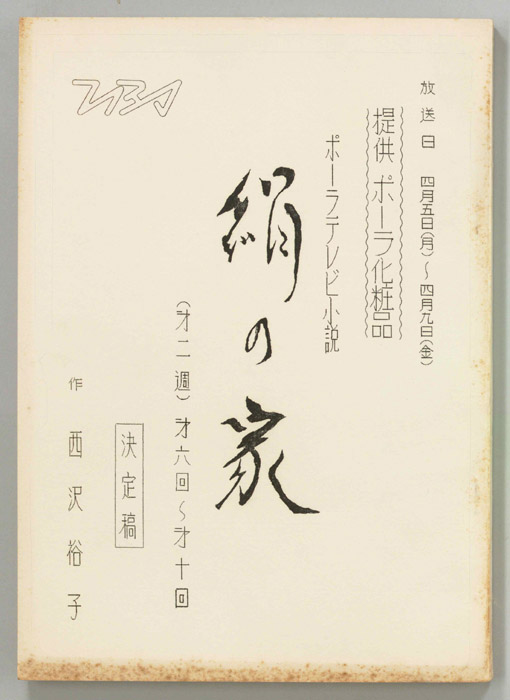 放送日 四月五日(月)～四月九日(金)
提供 ポーラ化粧品
ポーラテレビ小説
絹の家
(才二週)才六回～才十回
決定稿
作 西沢裕子
TBS